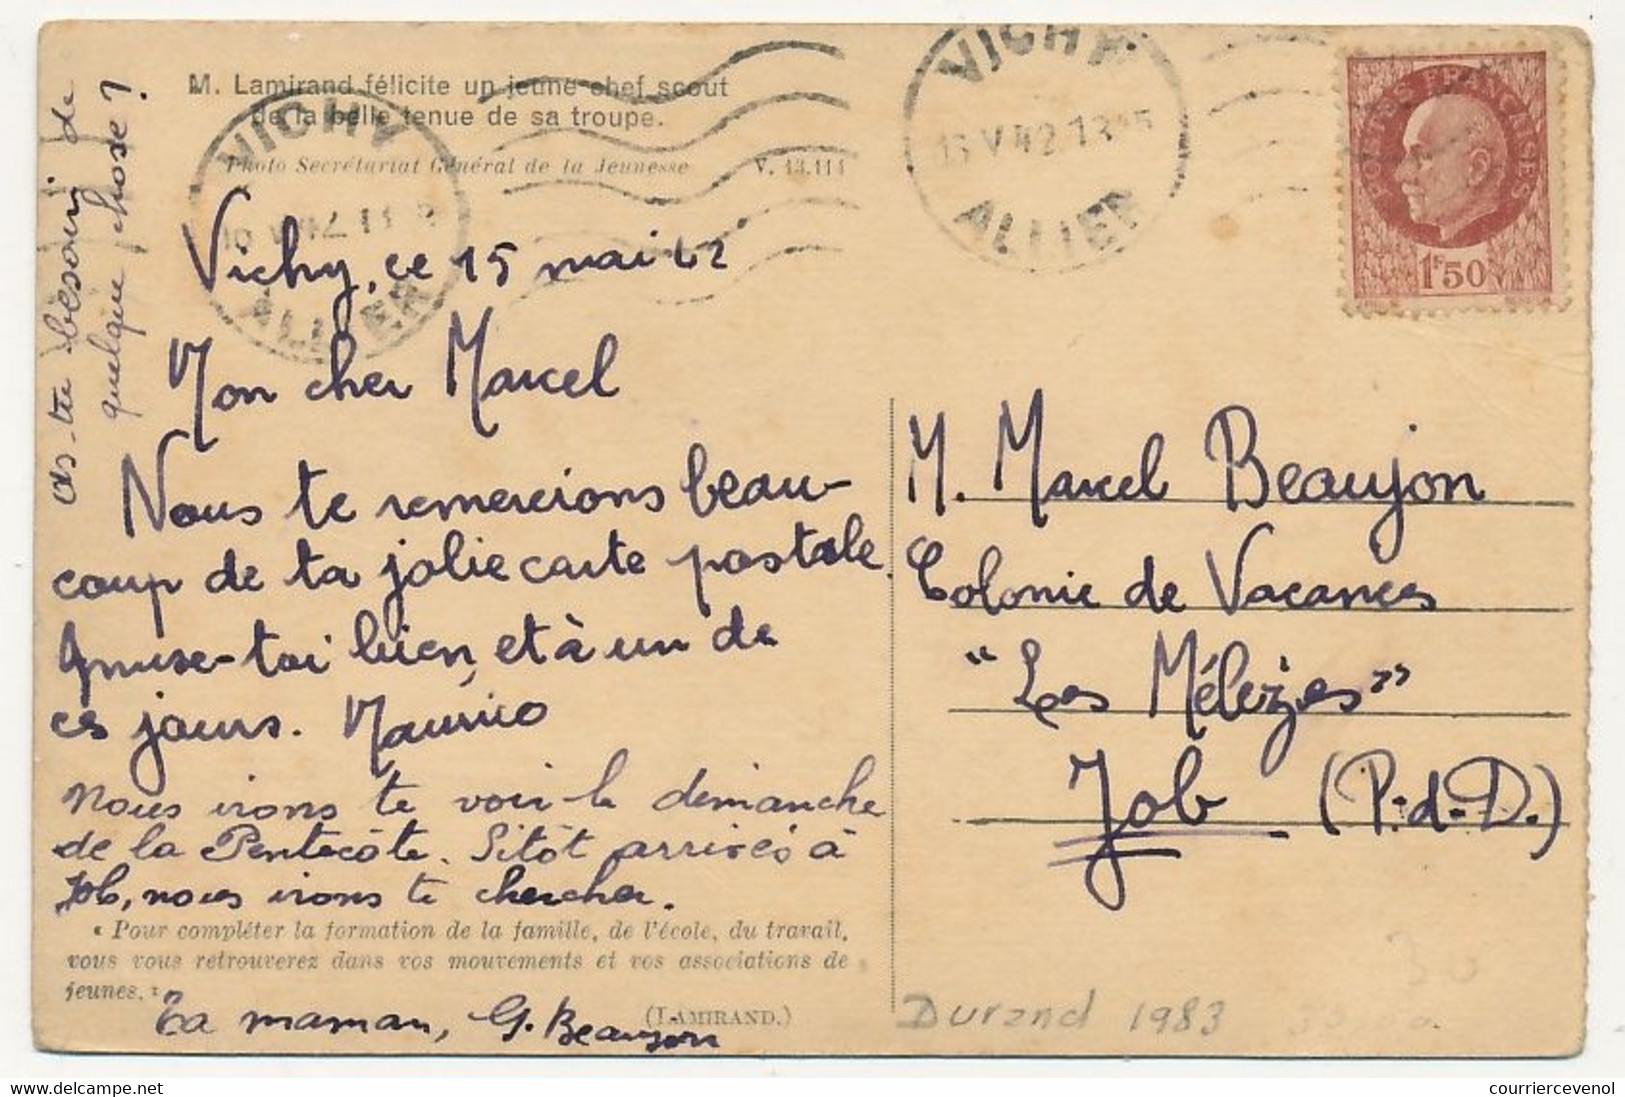 M. Lamirand félicite un jeune chef scout
de la belle tenue de sa troupe.
Photo Secrétariat Général de la Jeunesse V. 13.114
VICHY
ALLIER
VICHY
15 V 42 13 15
ALLIER
POSTES FRANÇAISES
1F50
as-tu besoin de
quelque chose ?
Vichy, ce 15 mai 42
Mon cher Marcel
Nous te remercions beau-
coup de ta jolie carte postale.
Amuse-toi bien, et à un de
ces jours. Maurice
Nous irons te voir le dimanche
de la Pentecôte. Sitôt arrivés à
Job, nous irons te chercher.
« Pour compléter la formation de la famille, de l'école, du travail,
vous vous retrouverez dans vos mouvements et vos associations de
jeunes. »
(LAMIRAND.)
Ta maman, G. Beaujon
M. Marcel Beaujon
Colonie de Vacances
"Les Mélèzes"
Job (P.-d-D.)
Durand 1983
30
courriercevenol